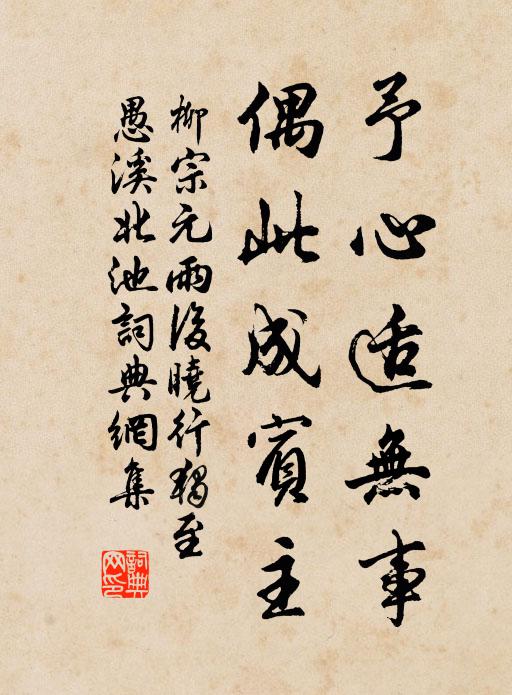 予心适無事
偶此成賓主
柳宗元雨後曉行獨至
愚溪北池詞典網集
詞典網印